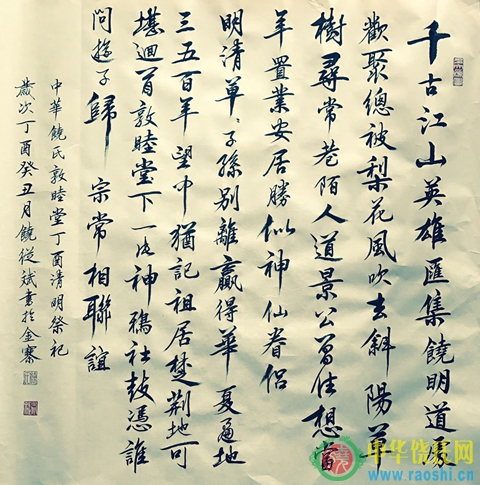 千古江山英雄匯集饒明道處
歡聚總被梨花風吹去斜陽草
樹尋常巷陌人道景公曾住想當
年置業安居勝似神仙眷侶
明清草々子孫別離贏得華夏遍地
三五百年望中猶記祖居楚荊地可
堪迴首敦睦堂下一片神鴉社鼓憑誰
問遊子歸宗常相聯誼
中華饒氏敦睦堂丁酉清明祭祀
歲次丁酉癸丑月饒從斌書於金寨
中华饶氏网
www.raoshi.cn